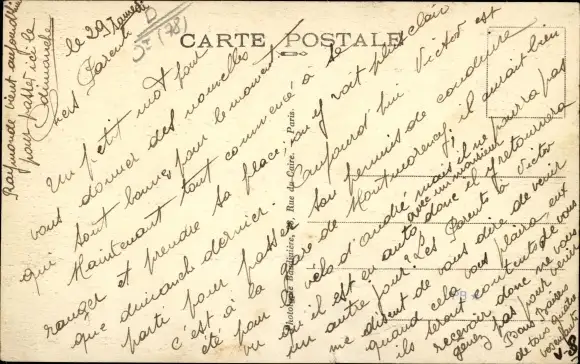 CARTE POSTALE
le 29
Samedi
D
S.O (78)
Chers Parents
Un petit mot pour
vous donner des nouvelles
qui sont bonnes pour le moment
Maintenant tout commence à se
ranger et prendre sa place, on y voit plus clair
que dimanche dernier. Aujourd'hui Victor est
parti pour passer son permis de conduire
c'est à la Gare de Montmorency, il aurait bien
été pour vélo d'André mais il ne pourra pas
vu qu'il est en auto avec un monsieur donc il y retournera
un autre jour. Les Parents à Victor
me disent de vous dire de venir
quand cela vous plaira, eux
ils seront contents de vous
recevoir donc ne vous
genez pas pour venir
Bons Baisers
de tous
V
Raymonde vient aujourd'hui
pour passer ici le
dimanche
Photographe Baudinière, Rue du Caire, Paris.